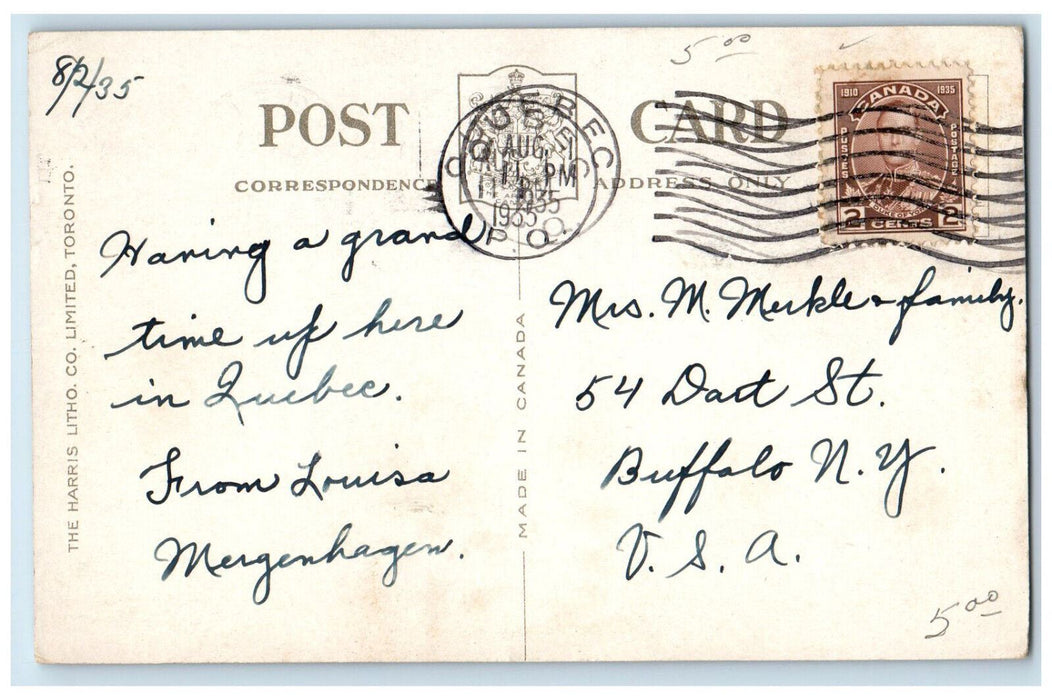 8/2/35
5.00
POST CARD
CORRESPONDENCE ADDRESS ONLY
QUEBEC
AUG 1
11 PM
1935
P.Q.
1910 CANADA 1935
POSTES POSTAGE
2 CENTS 2
Having a grand
time up here
in Quebec.
From Louisa
Mergenhagen.
Mrs. M. Merkle & family.
54 Dart St.
Buffalo N.Y.
U.S.A.
5.00
THE HARRIS LITHO. CO. LIMITED, TORONTO.
MADE IN CANADA